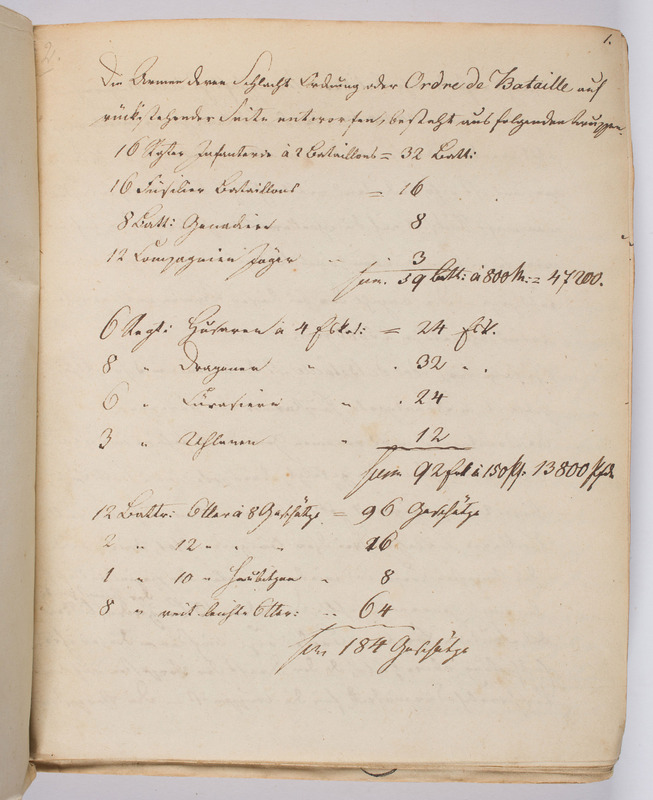 2.
1.
Die Armee deren Schlacht Ordnung oder Ordre de Bataille auf
rückstehender Seite entworfen, besteht aus folgenden Truppen.
16 Rgter Infanterie à 2 Bataillons = 32 Batt:
16 Füsilier Bataillons = 16
8 Batt: Grenadiere 8
12 Compagnien Jäger " . 3
Sum. 59 Batt: à 800 M: = 47200.
6 Regt: Husaren à 4 Esk: = 24 Esk.
8 " Dragoner " . 32 " .
6 " Cürasiere " . 24
3 " Uhlanen " 12
Sum 92 Esk à 150 Pf. 13800 Pfde
12 Battr: 6 ller à 8 Geschütze = 96 Geschütze
2 " 12 " " " 16
1 " 10 " Haubitzen " 8
8 " reit. leichte 6 ller: " 64
Sum 184 Geschütze